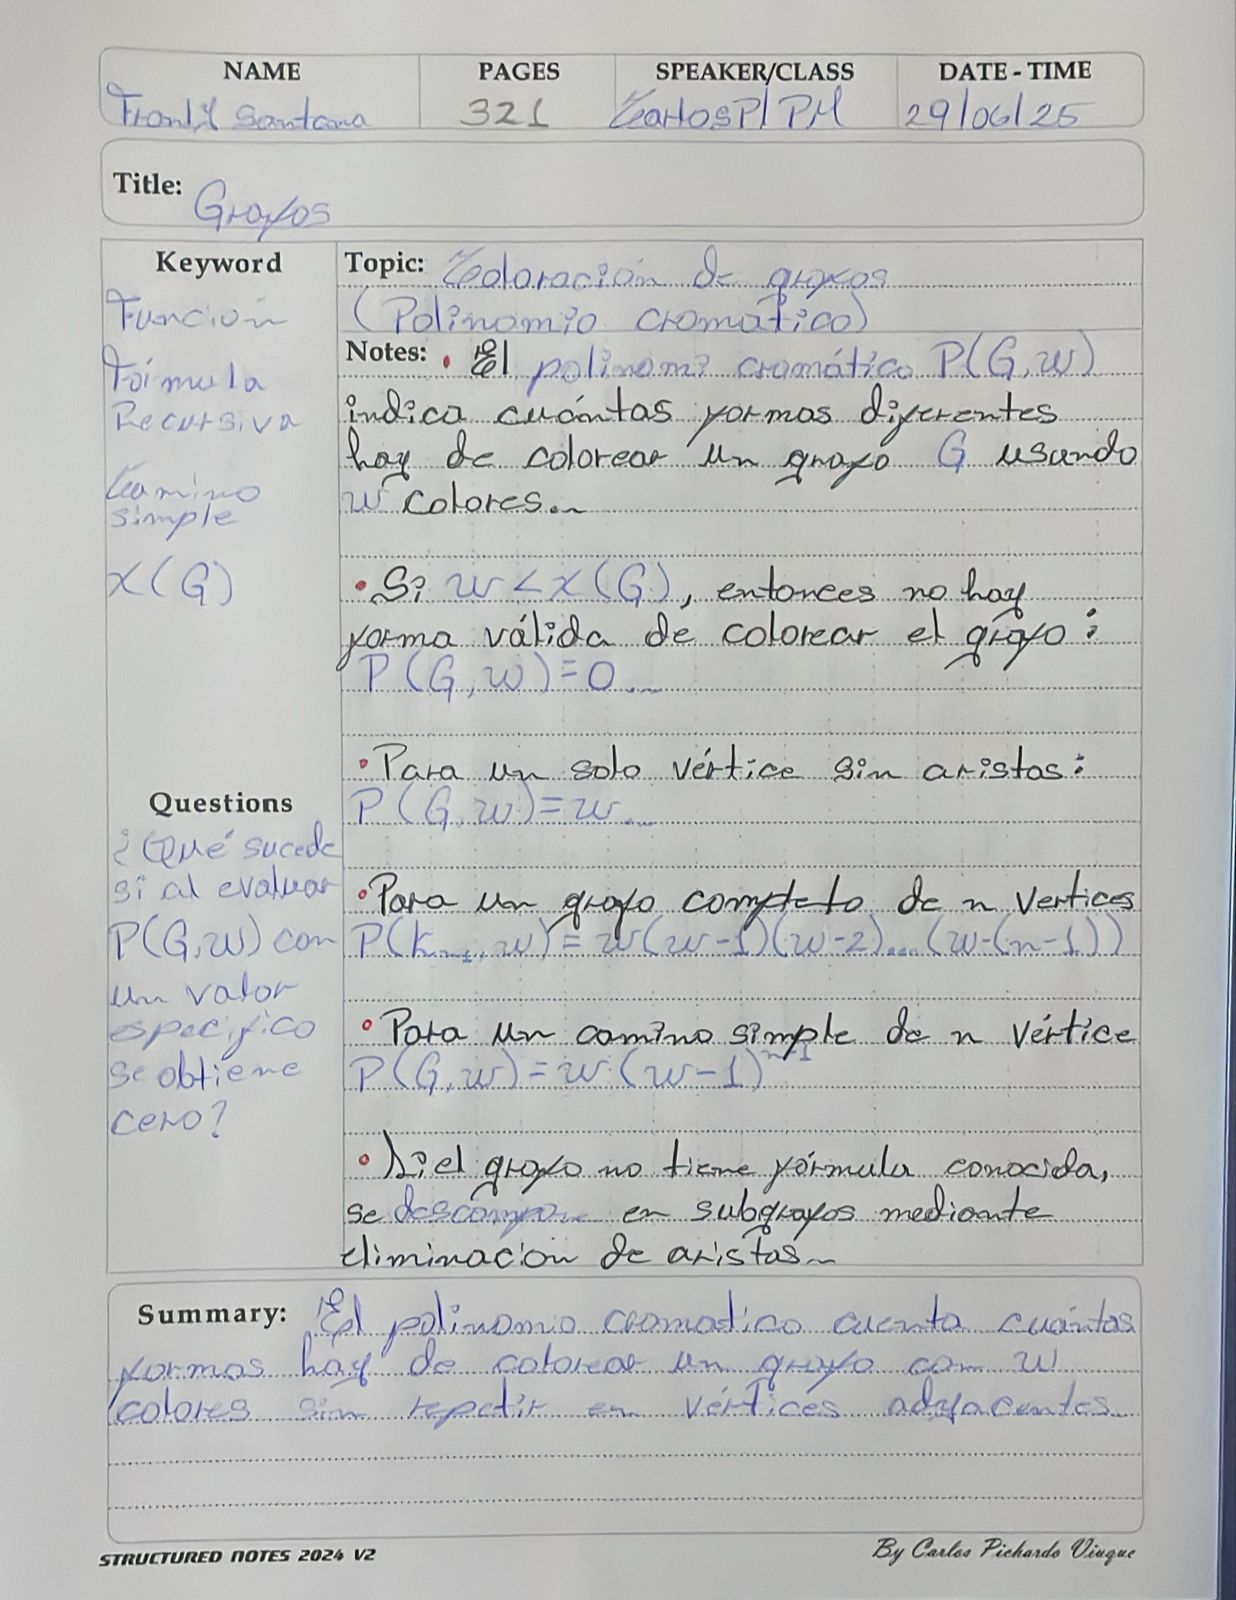 NAME PAGES SPEAKER/CLASS DATE - TIME
Frankil Santana 321 CarlosP/PM 29/06/25
Title: Grafos
Keyword
Función
Fórmula
Recursiva
Camino
simple
X(G)
Questions
¿Qué sucede
si al evaluar
P(G,w) con
un valor
especifico
se obtiene
cero?
Topic: Coloración de grafos
(Polinomio cromático)
Notes: • El polinomi cromático P(G,w)
indica cuántas formas diferentes
hay de colorear un grafo G usando
w colores.
• Si w < X(G), entonces no hay
forma válida de colorear el grafo:
P(G,w)=0...
• Para un solo vértice sin aristas:
P(G,w)=w...
• Para un grafo completo de n vertices
P(Kn,w)=w(w-1)(w-2)...(w-(n-1))
• Para un camino simple de n vértice
P(G,w)=w(w-1)^n-1
• Si el grafo no tiene fórmula conocida,
se descompone en subgrafos mediante
eliminación de aristas
Summary: El polinomio cromatico cuenta cuántas
formas hay de colorear un grafo con w
colores sin repetir en vértices adyacentes
STRUCTURED NOTES 2024 V2
By Carlos Pichardo Viuque